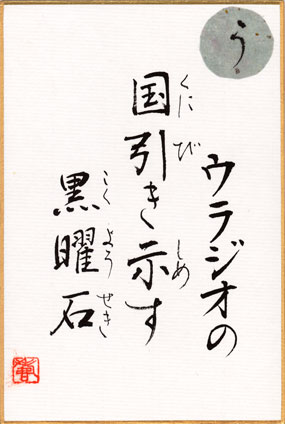 う
ウラジオの
国引き示す
くにび しめ
黒曜石
こくようせき